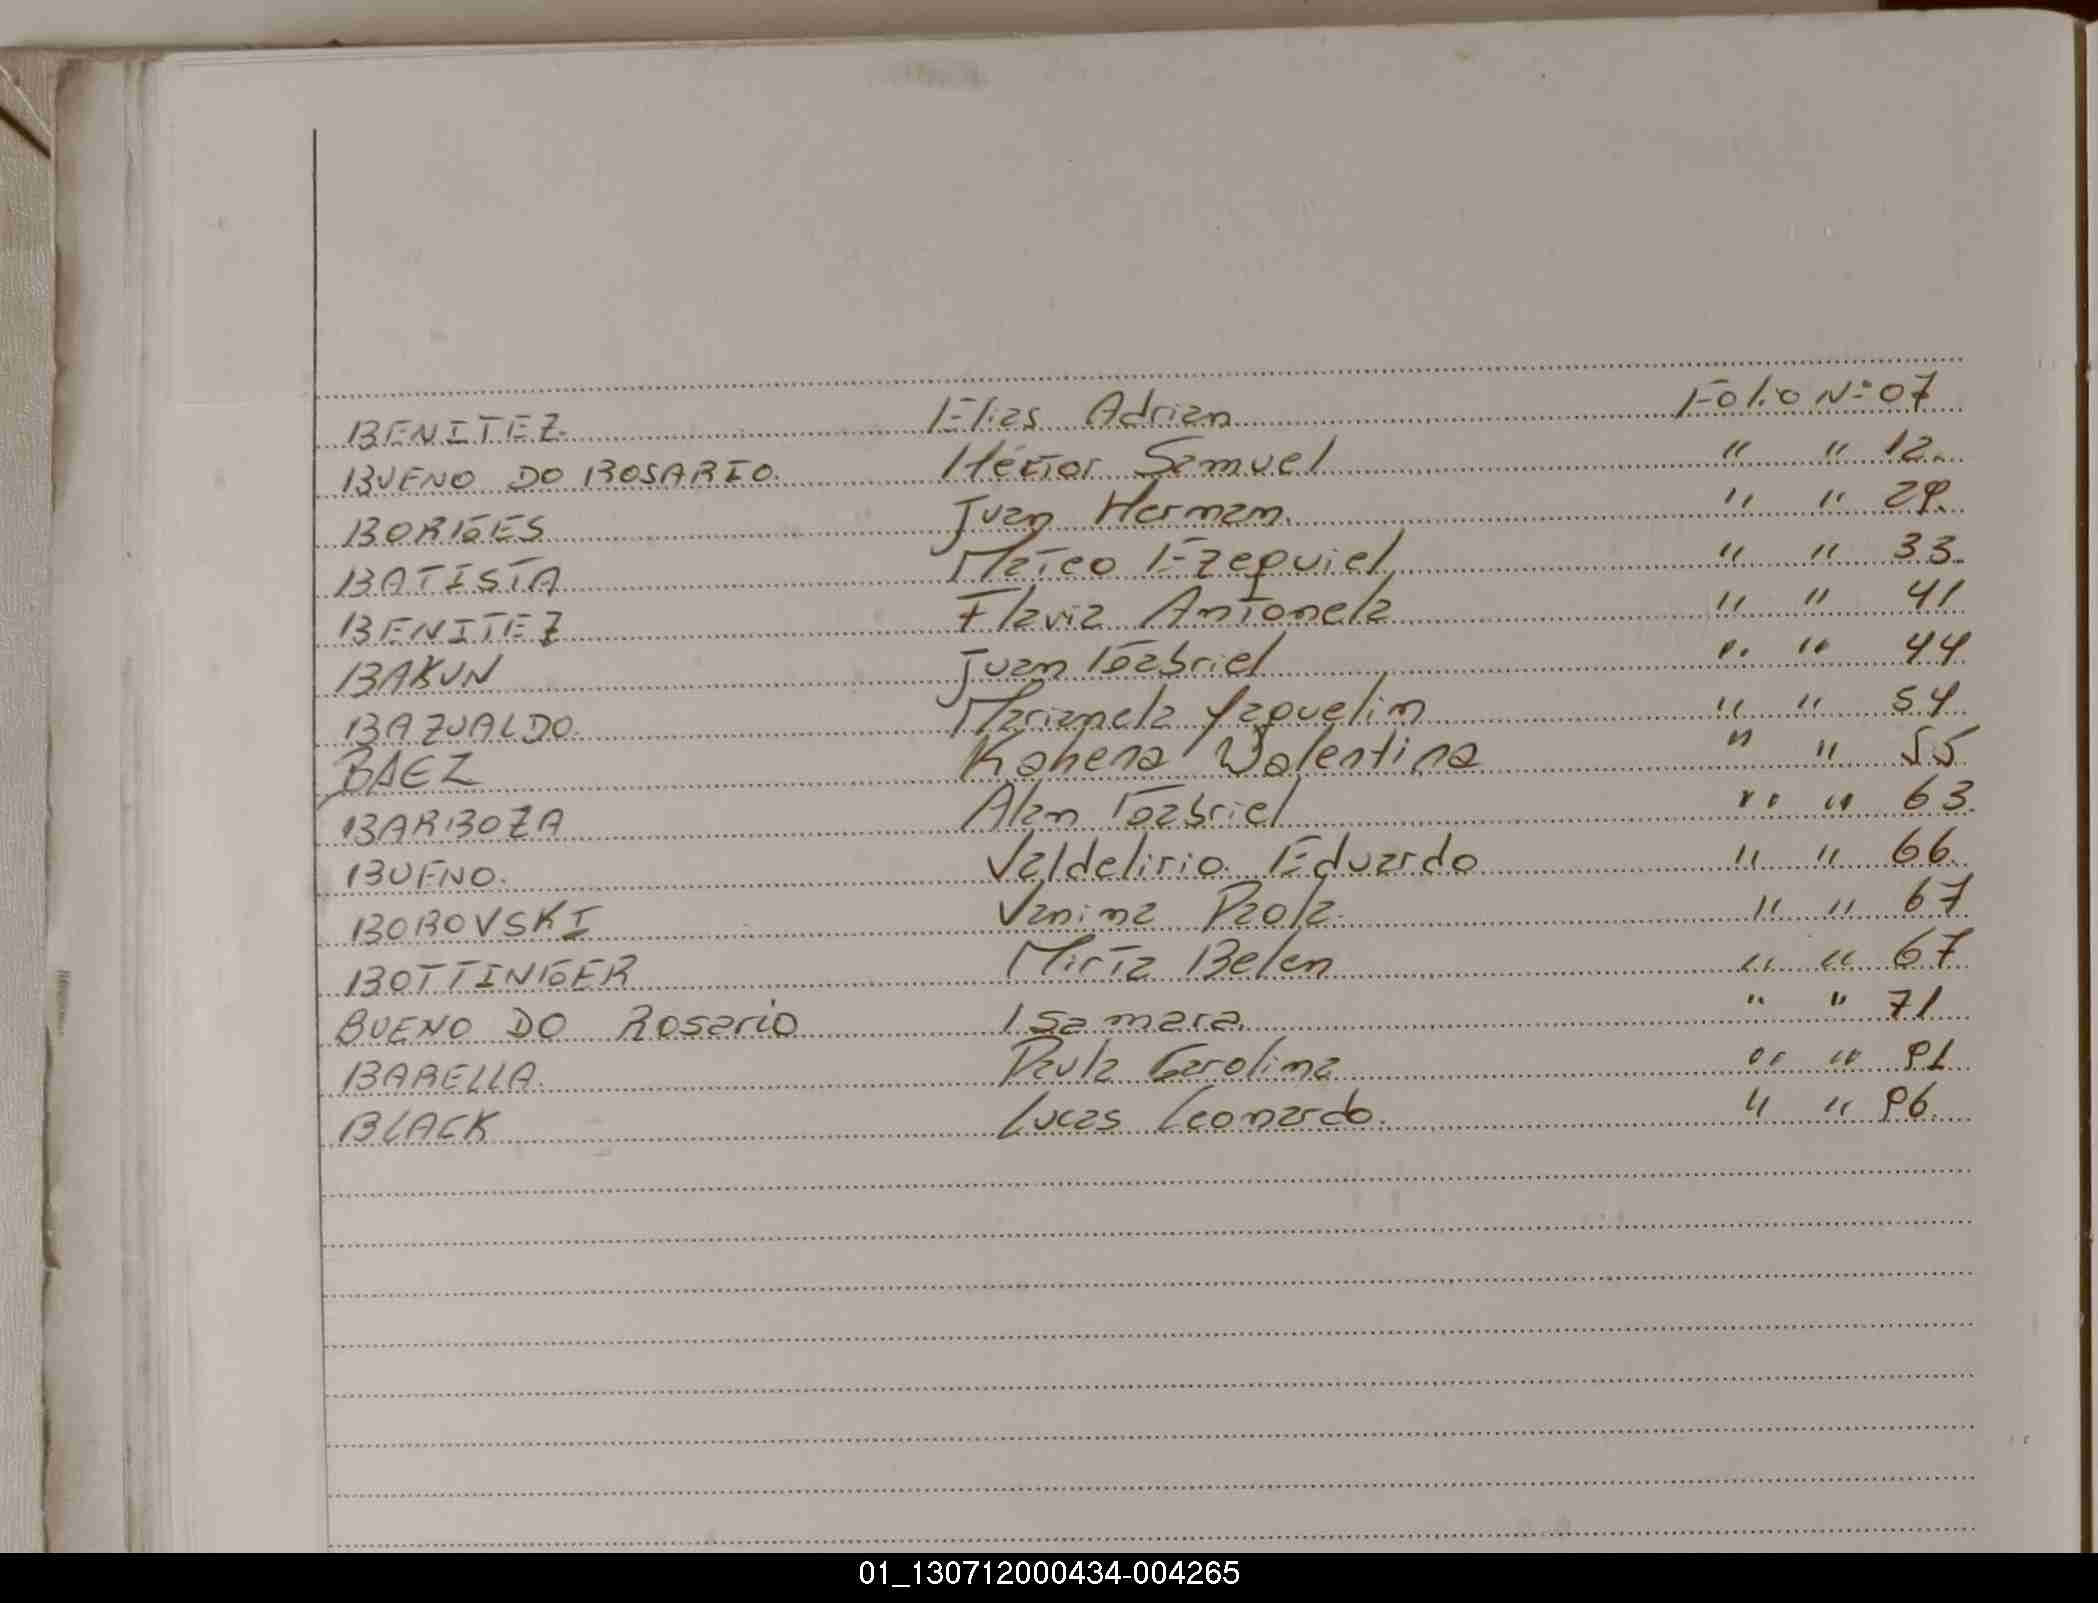 BENITEZ. Elias Adrian Folio Nº 07
BUENO DO ROSARIO. Héctor Samuel " " 12.
BORGES Juan Hernan. " " 29.
BATISTA Mateo Ezequiel " " 33.
BENITEZ Flavia Antonela " " 41
BAKUN Juan Gabriel " " 44
BAZUALDO. Marianela Yaquelin " " 54
BAEZ Kahena Walentina " " 55
BARBOZA Alan Gabriel " " 63.
BUENO. Valdelirio Eduardo " " 66.
BOROVSKI Vanina Paola. " " 67
BOTTINGER Mirta Belen " " 67
BUENO DO Rosario Isamara. " " 71
BARELLA. Paula Carolina " " 91
BLACK Lucas Leonardo. " " 96.
01_130712000434-004265